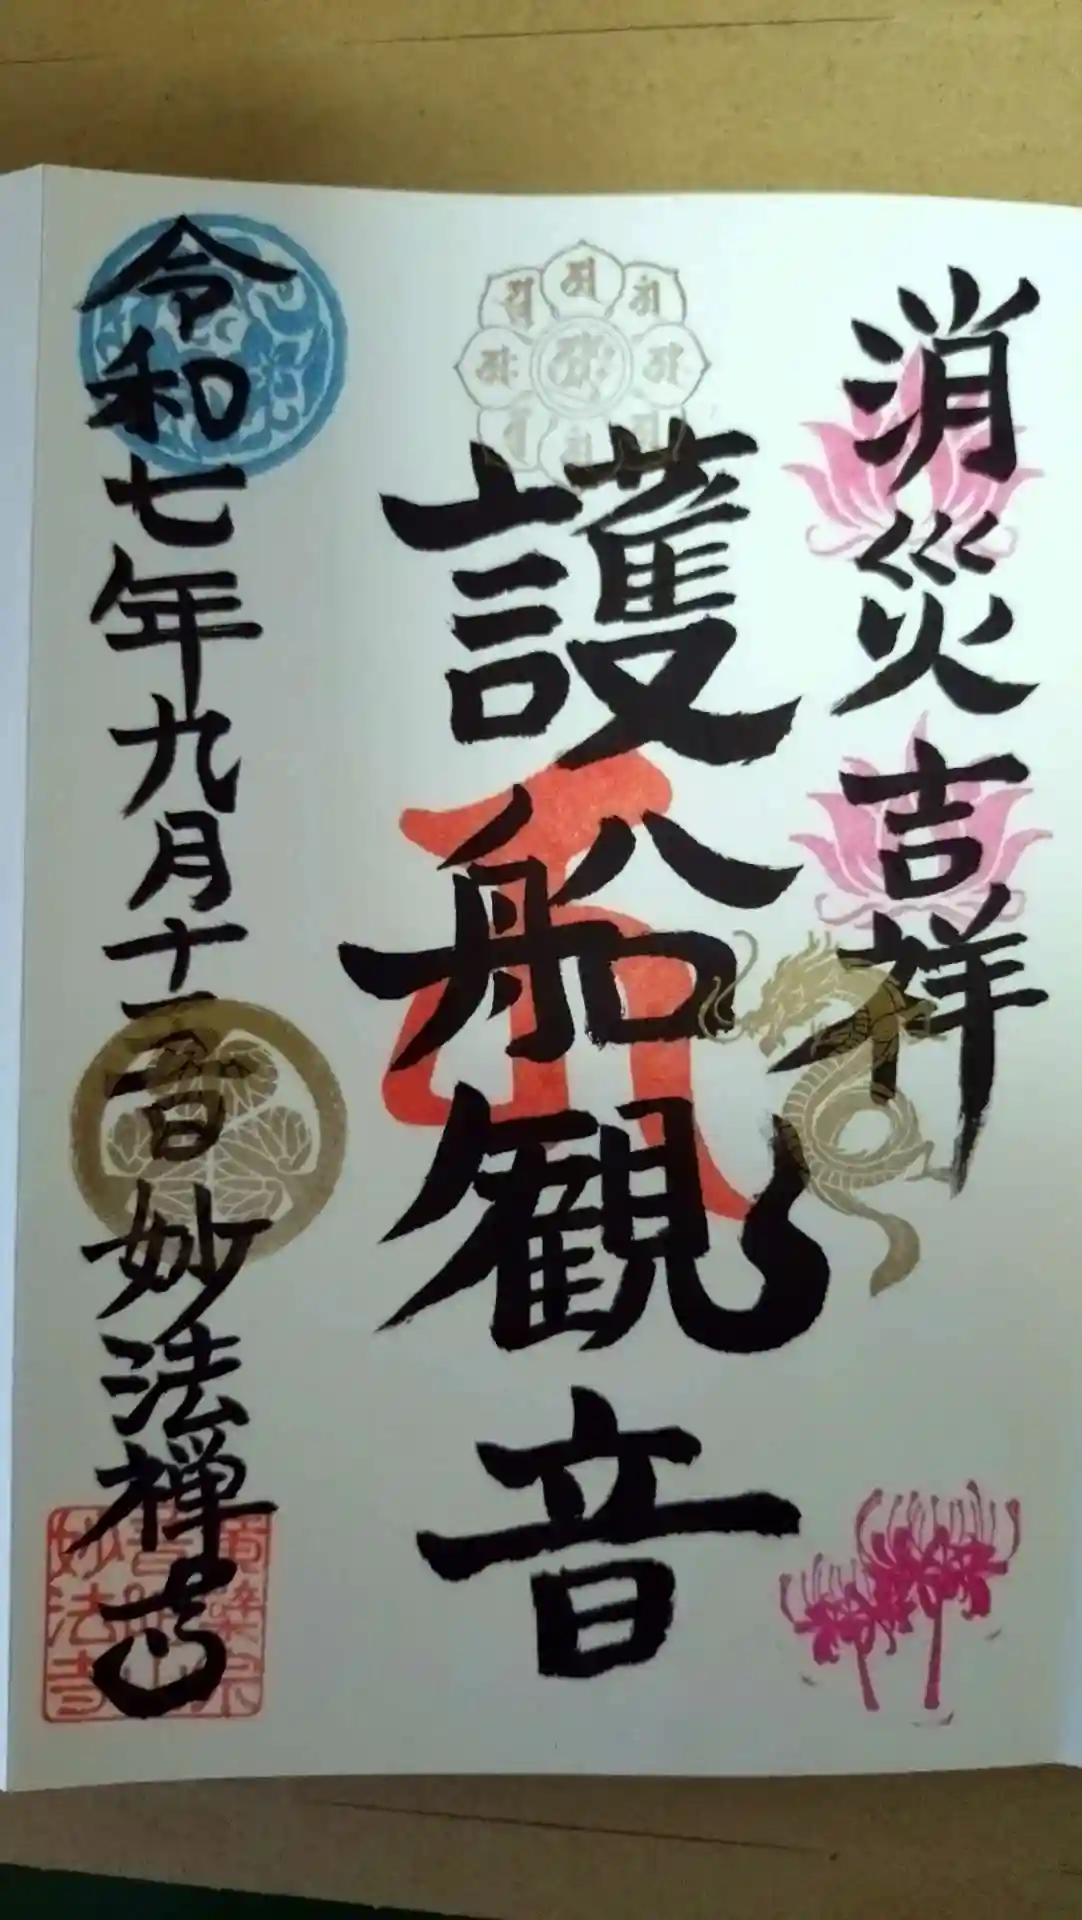 消災吉祥
護船観音
令和七年九月十 日 妙法禅寺
黄檗宗
妙法寺